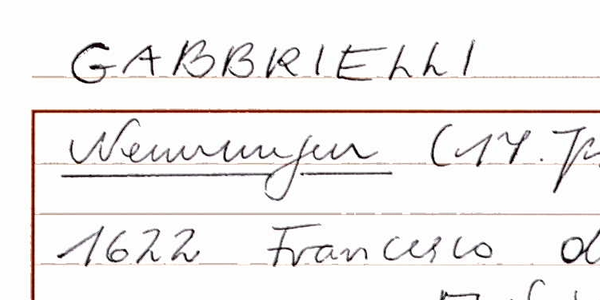 GABBRIELLI
Nennungen (17.
1622 Francesco